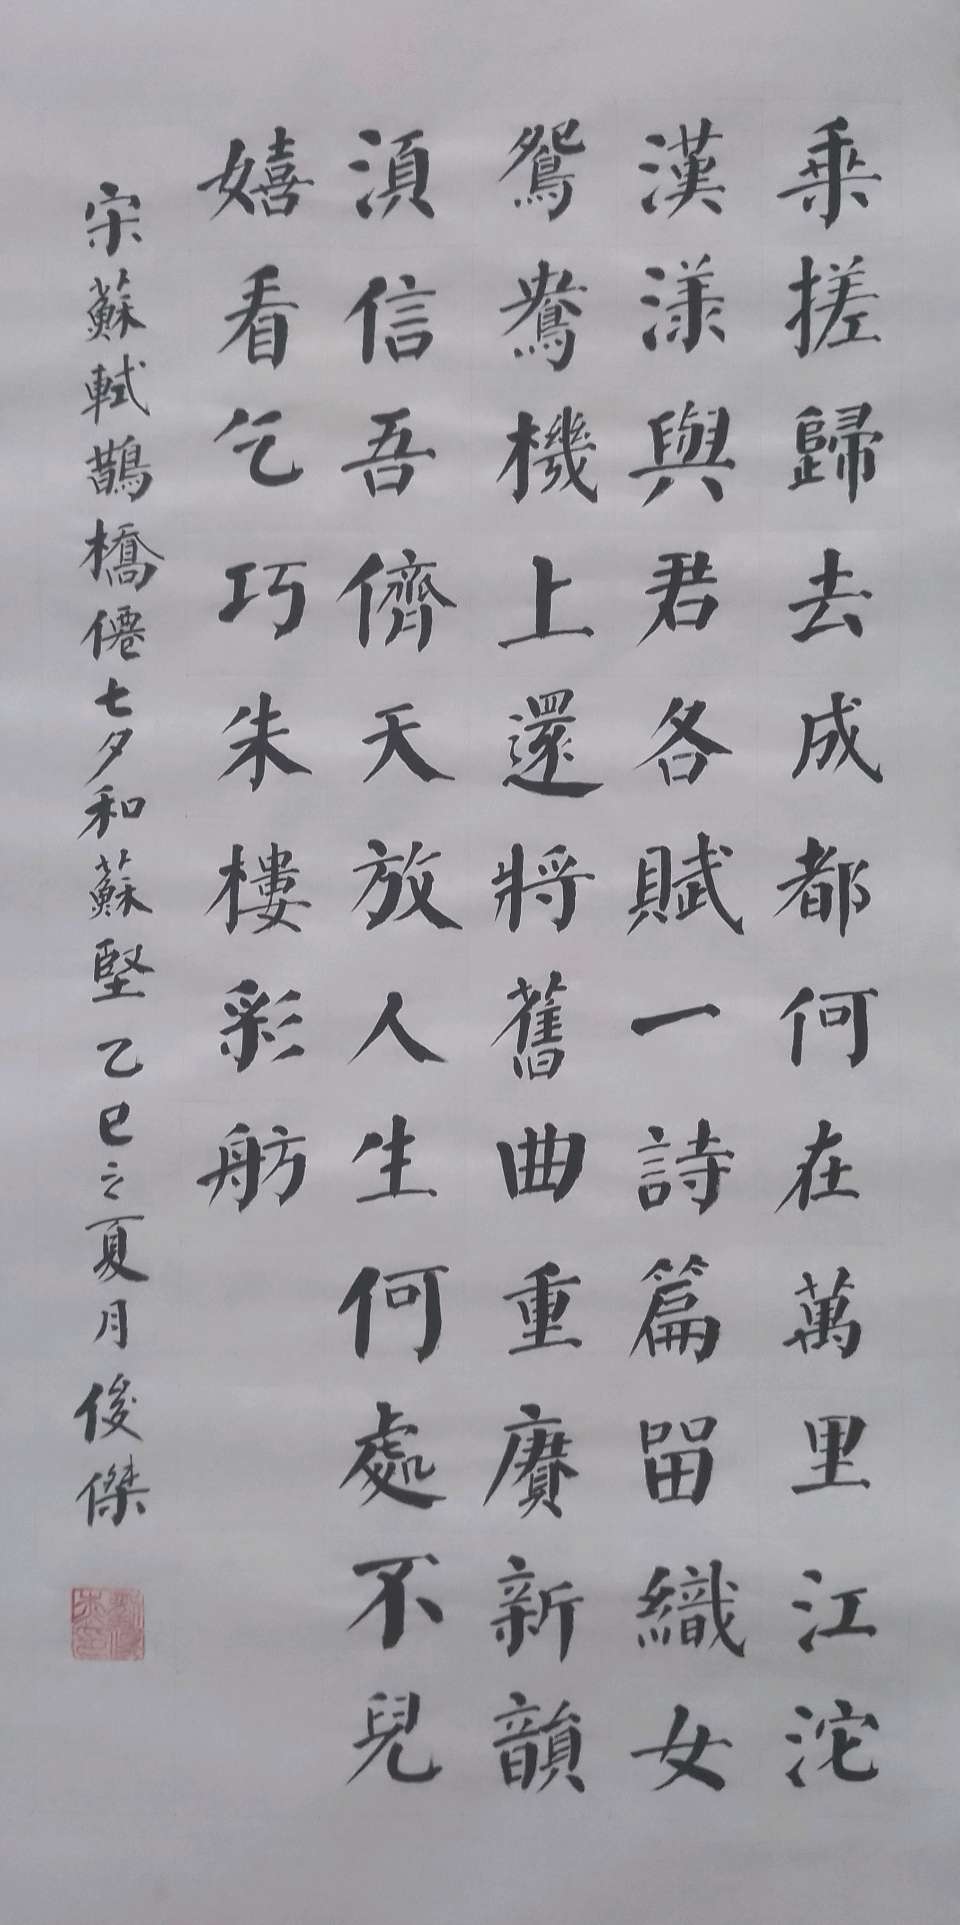 乗搓歸去成都何在萬里江沱
漢漾與君各賦一詩篇留織女
鴛鴦機上還將舊曲重賡新韻
須信吾儕天放人生何處不兒
嬉看乞巧朱樓彩舫
宋蘇軾鵲橋僊七夕和蘇堅乙巳之夏月俊傑